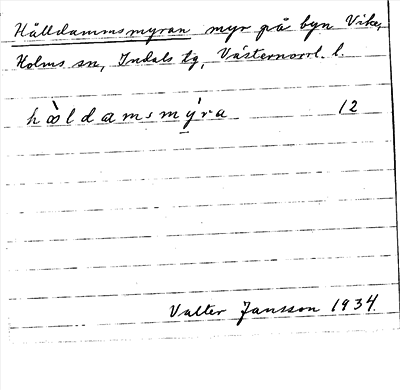 Hålldammsmyran myr på byn Vike,
Holms sn, Indals tg, Västernorrl. l.
hòldamsmýra 12
Valter Jansson 1934.